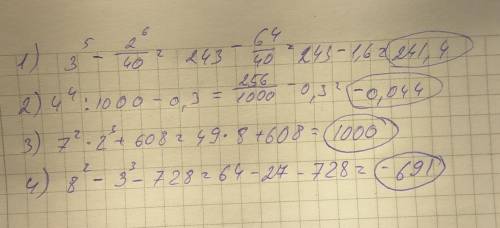 1) 3⁵ - 2⁶/40 = 243 - 64/40 = 243 - 1,6 = 241,4
2) 4⁴ : 1000 - 0,3 = 256/1000 - 0,3 = -0,044
3) 7² · 2³ + 608 = 49 · 8 + 608 = 1000
4) 8² - 3³ - 728 = 64 - 27 - 728 = -691